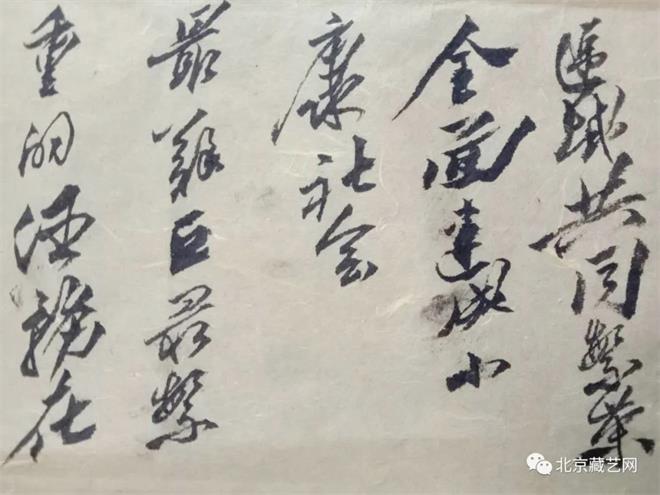 區域共同繁荣
全面建成小
康社会
最艱巨最繁
重的任務在
北京藏艺网